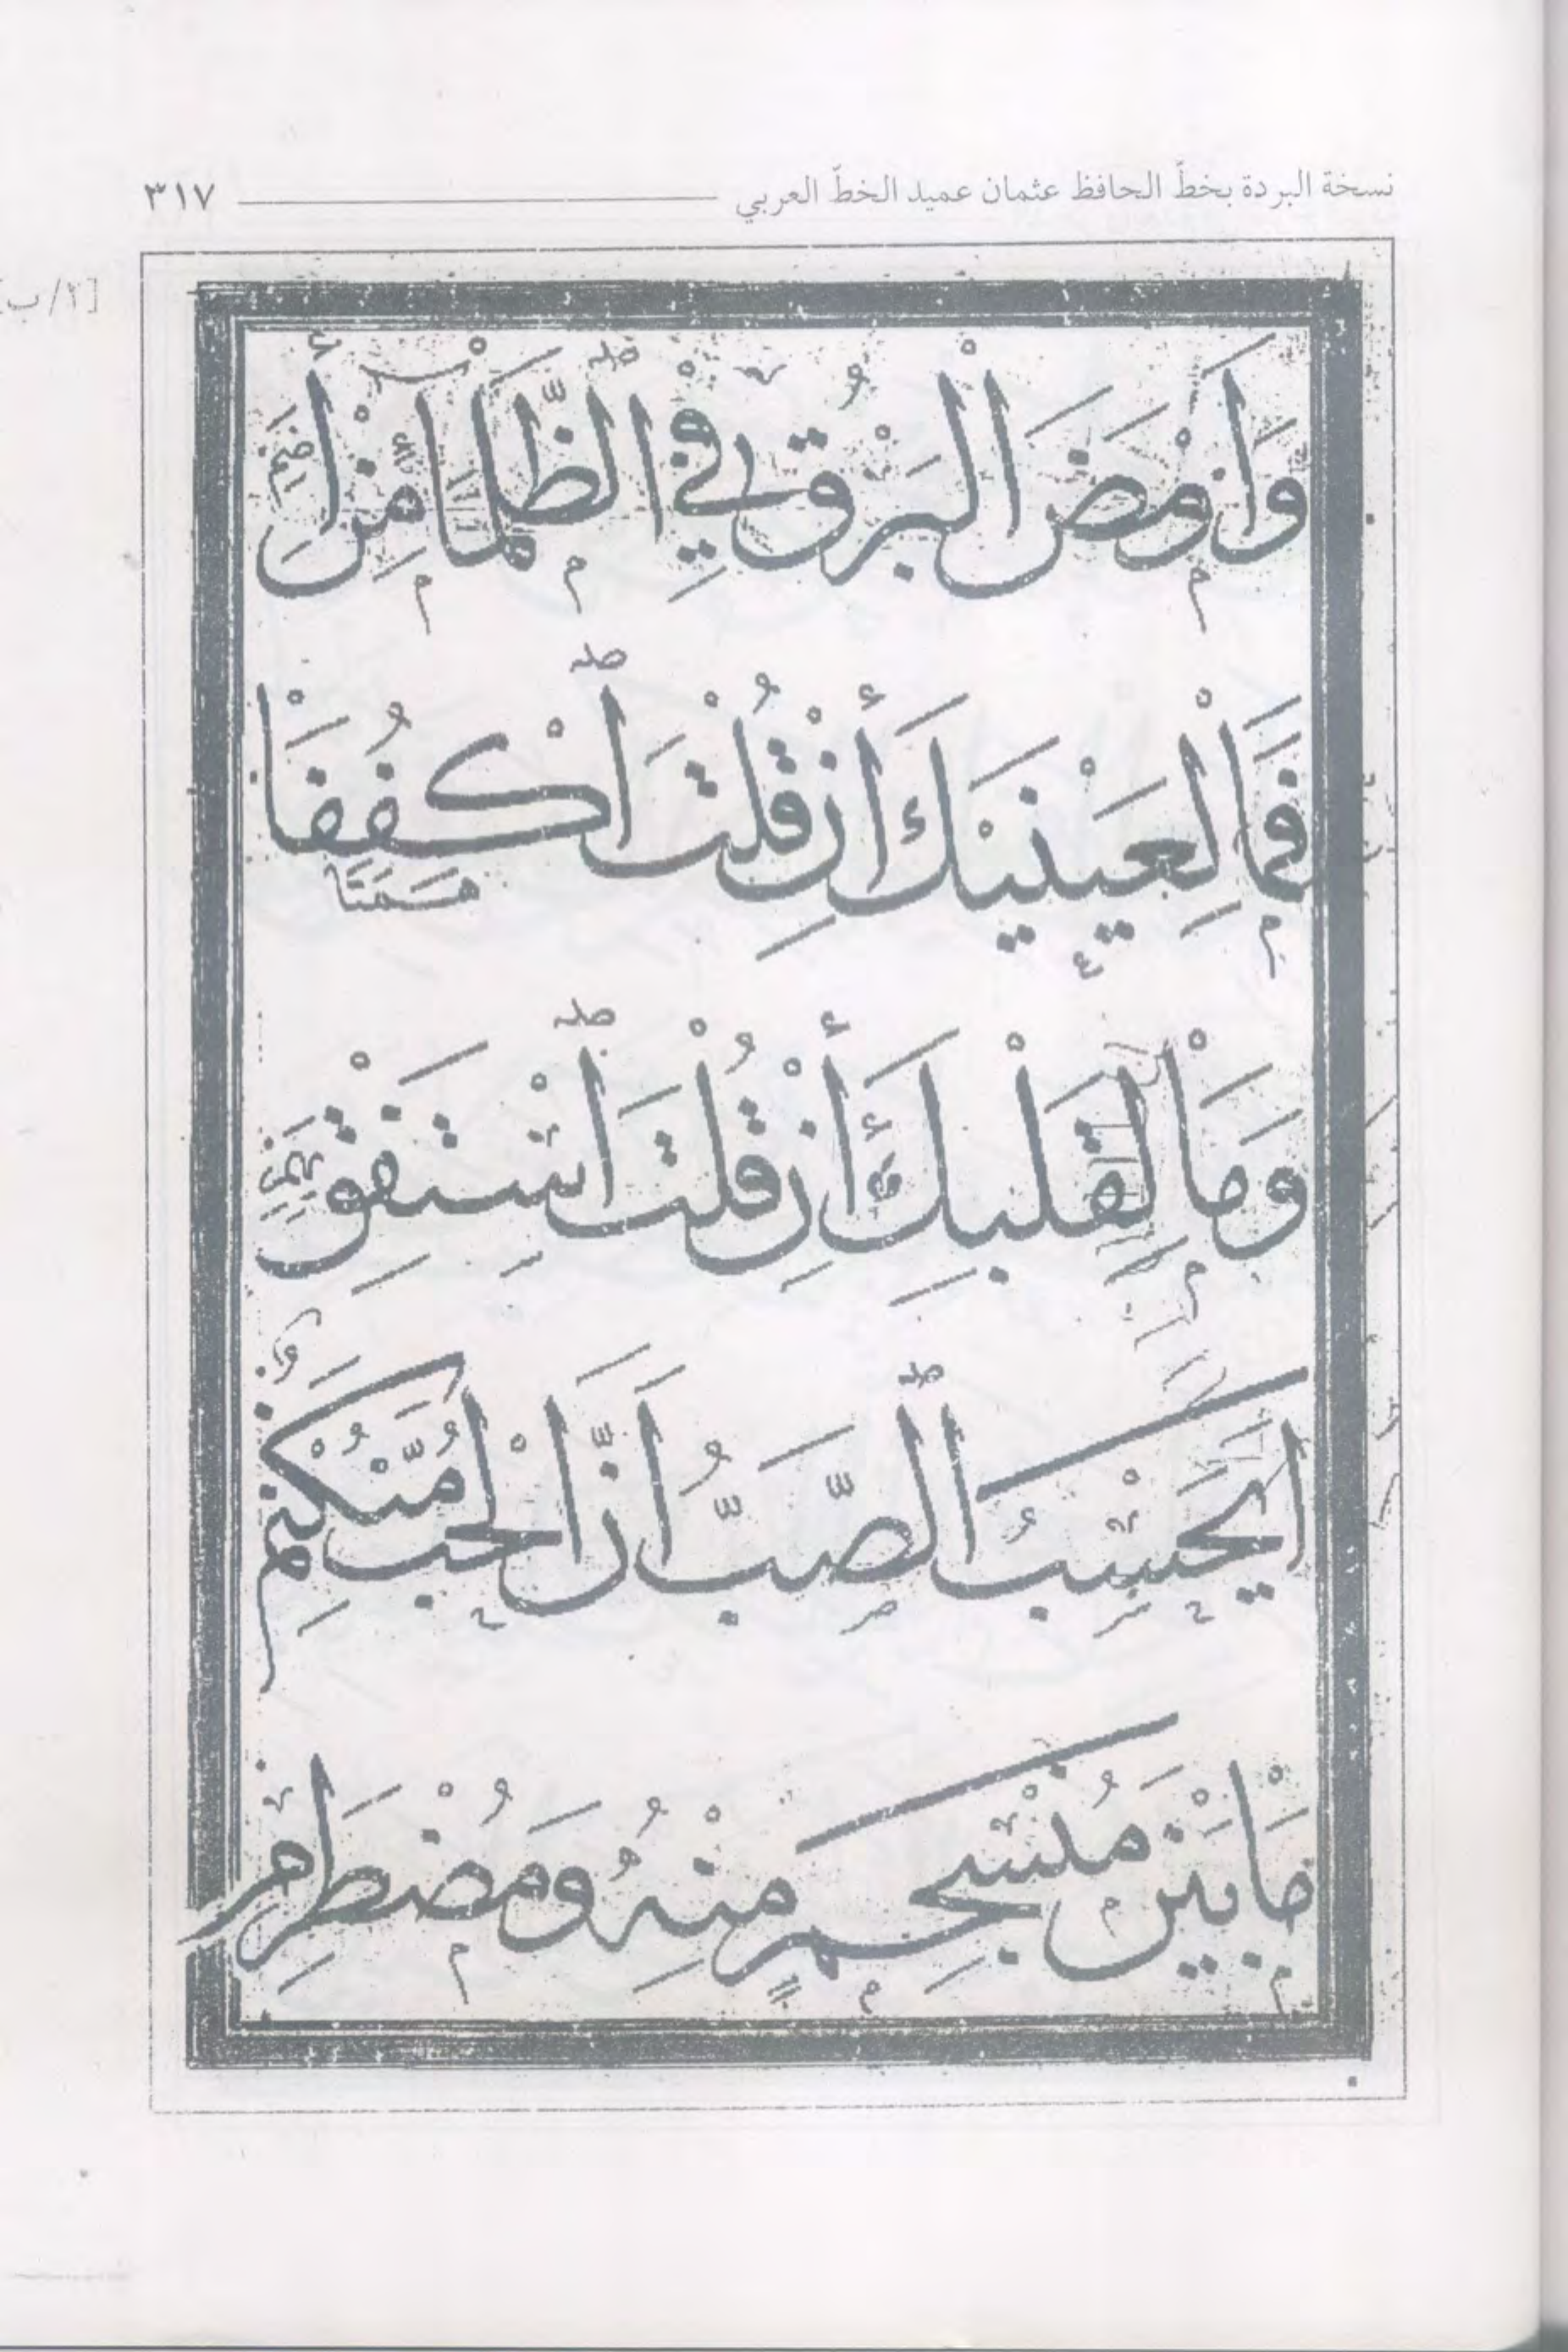 نسخة البردة بخطّ الحافظ عثمان عميد الخطّ العربي ٣١٧
[٢/ب]
وَأَوْمَضَ الْبَرْقُ فِي الظَّلْمَاءِ مِنْ إِضَمِ
فَمَا لِعَيْنَيْكَ إِنْ قُلْتَ اكْفُفَا هَمَتَا
وَمَا لِقَلْبِكَ إِنْ قُلْتَ اسْتَفِقْ يَهِمِ
أَيَحْسِبُ الصَّبُّ أَنَّ الْحُبَّ مُنْكَتِمٌ
مَا بَيْنَ مُنْسَجِمٍ مِنْهُ وَمُضْطَرِمِ